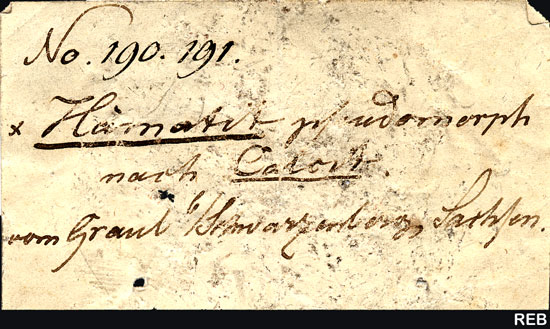 No. 190. 191.
x Hämatit pseudomorph
nach Calcit.
vom Graul b/Schwarzenberg, Sachsen.
REB